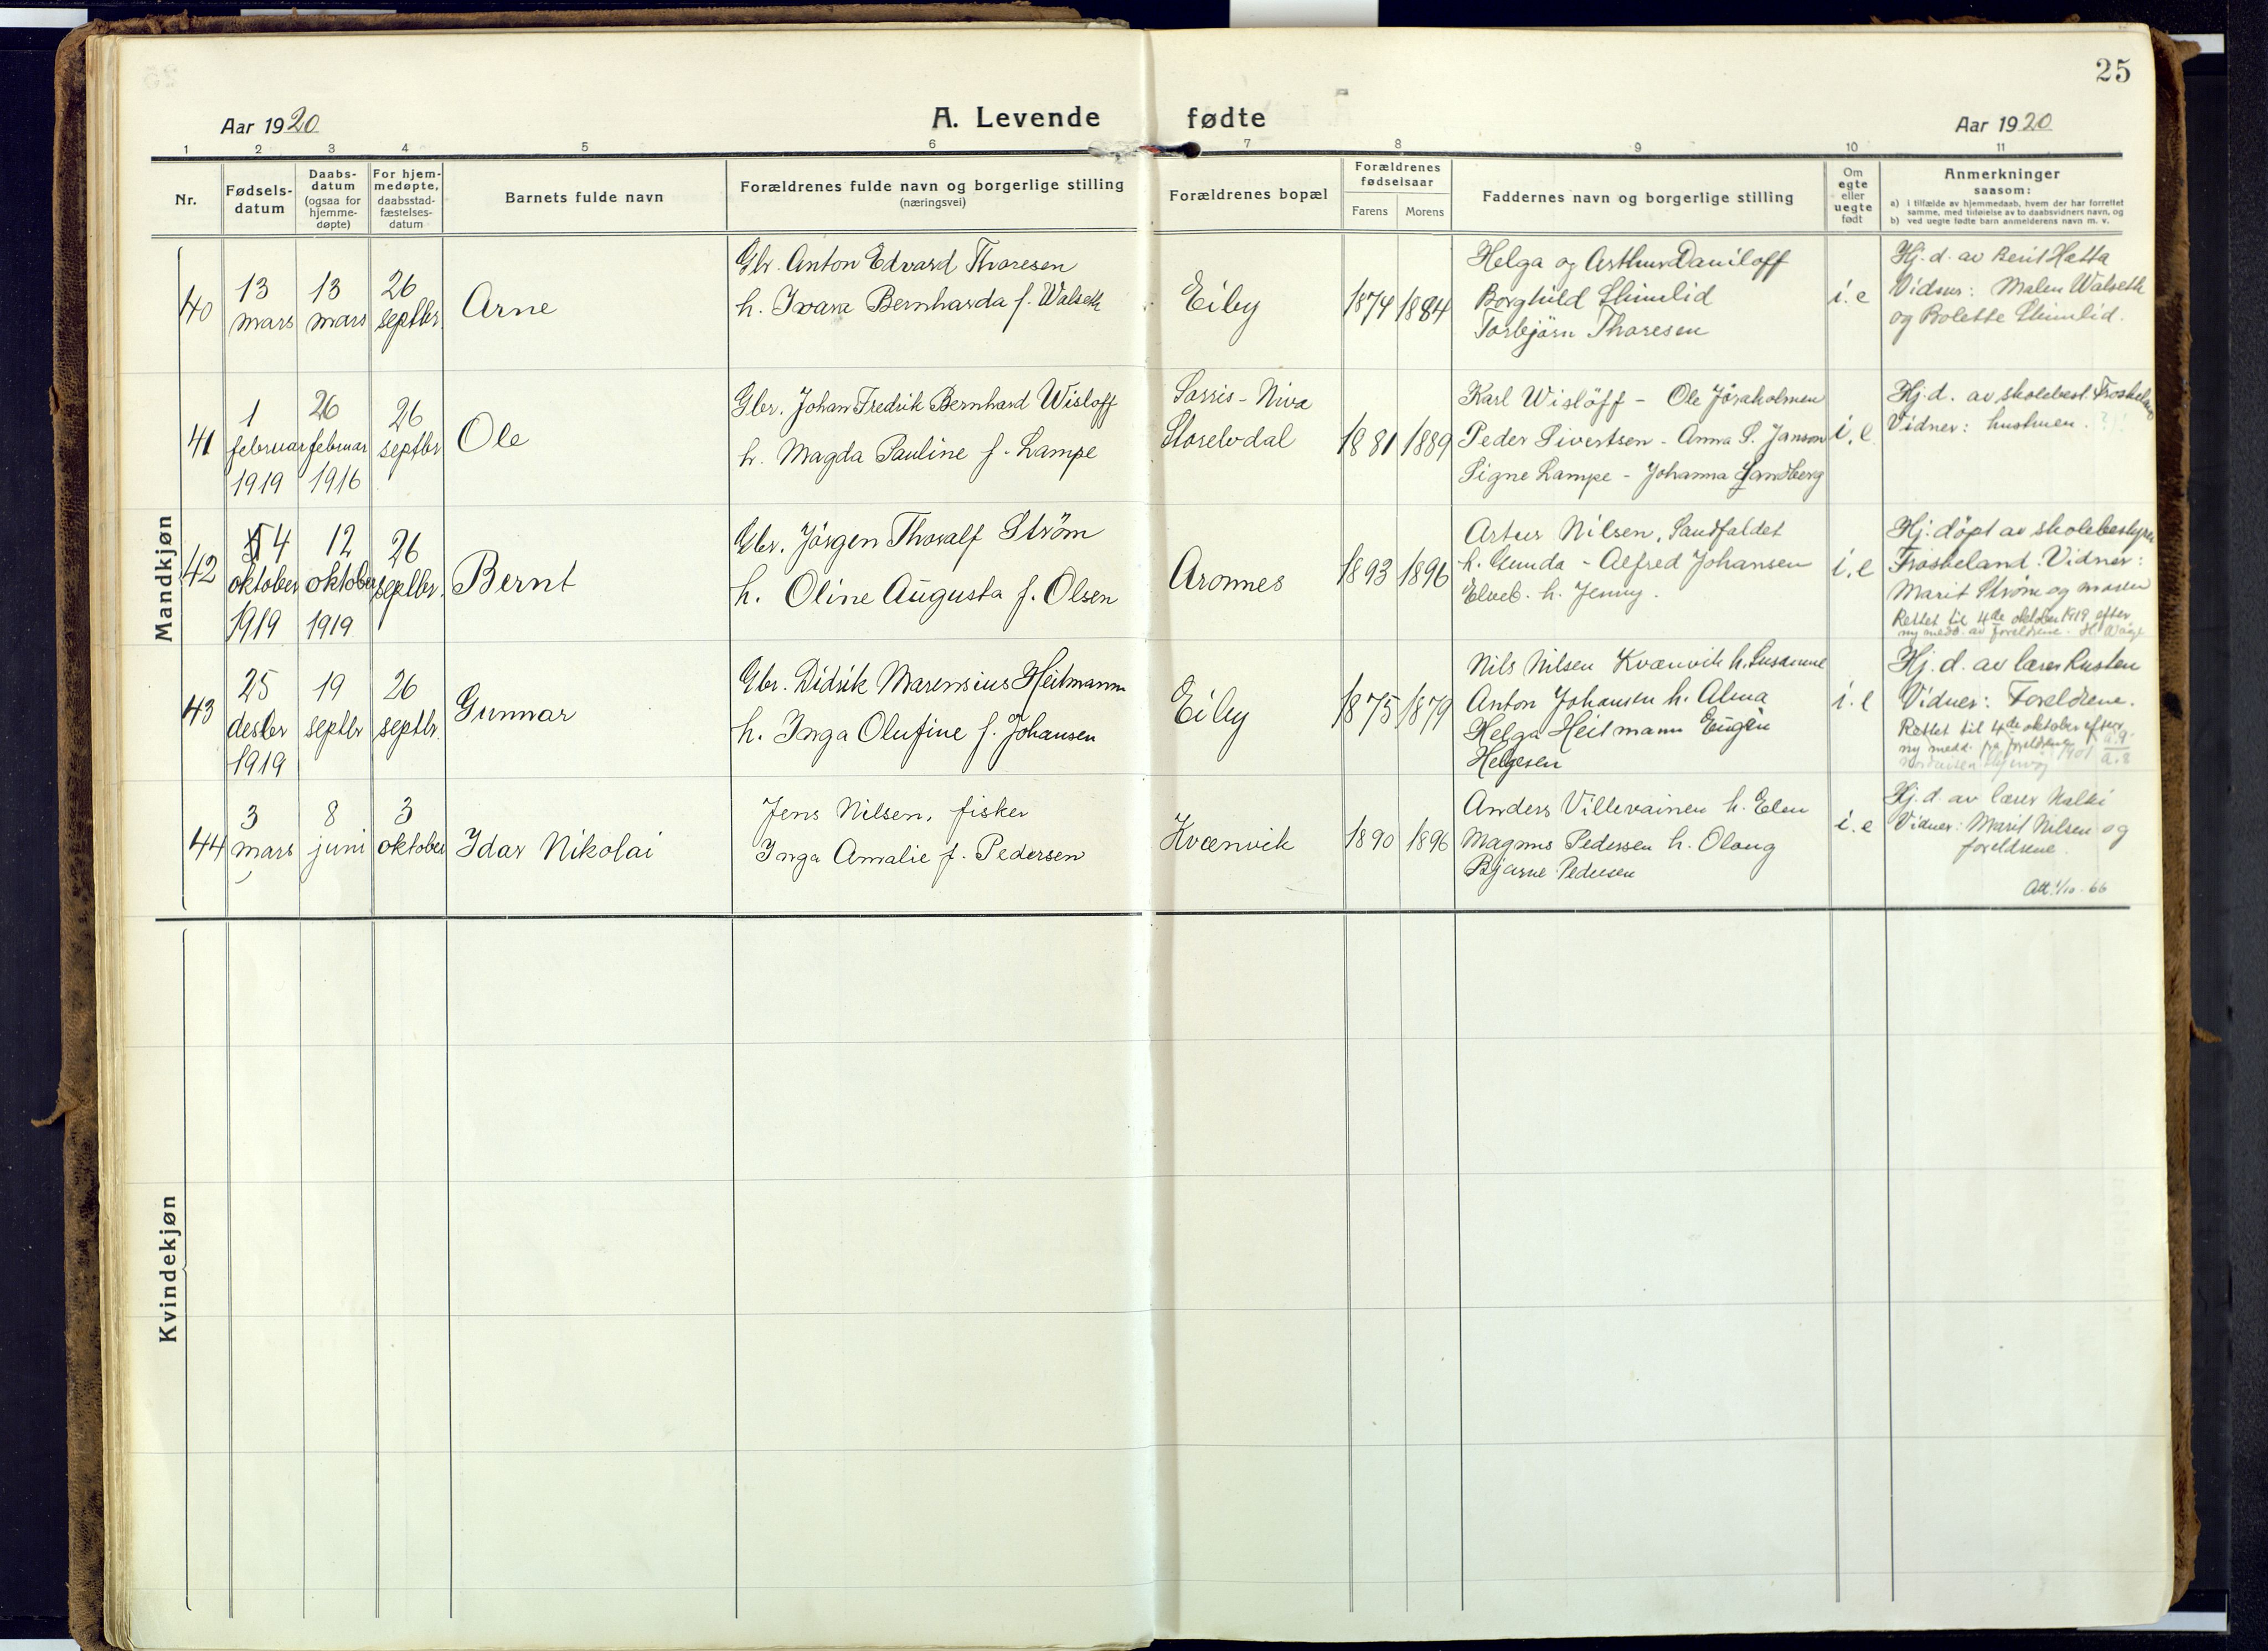 25
Aar 1920
A. Levende fødte
Aar 1920
1 2 3 4 5 6 7 8 9 10 11
Nr.
Fødsels-
datum
Daabs-
datum
(ogsaa for
hjemme-
døpte)
For hjem-
medøpte,
daabsstad-
fæstelses-
datum
Barnets fulde navn
Forældrenes fulde navn og borgerlige stilling
(næringsvei)
Forældrenes bopæl
Forældrenes
fødselsaar
Farens Morens
Faddernes navn og borgerlige stilling
Om
egte
eller
uegte
født
Anmerkninger
saasom:
a) i tilfælde av hjemmedaab, hvem der har forrettet
samme, med tilføielse av to daabsvidners navn, og
b) ved uegte fødte barn anmelderens navn m. v.
Mandkjøn
40
13
mars
13
mars
26
septbr.
Arne
Gbr. Anton Edvard Thoresen
h. Ivara Bernharda f. Walseth
Eiby
1874 1884
Helga og Arthur Daniloff
Borghild Skimlid
Torbjörn Thoresen
i. e
Hj. d. av Berit Hætta
Vidner: Malen Walseth
og Bolette Skimlid.
41
1
februar
1919
26
februar
1916
26
septbr
Ole
Gbr. Johan Fredrik Bernhard Wisloff
h. Magda Pauline f. Lampe
Sarris-Niva
Storelvdal
1881 1889
Karl Wislöff - Ole Jöraholmen
Peder Sivertsen - Anna S. Janson
Signe Lampe - Johanna Sandberg
i. e
Hj. d. av skolebest. Froskeland
Vidner: hustruen.
42
4
oktober
1919
12
oktober
1919
26
septbr.
Bernt
Gbr. Jörgen Thoralf Ström
h. Oline Augusta f. Olsen
Aronnes
1893 1896
Artur Nilsen, Sandfaldet
h. Gunda - Alfred Johansen
Elveb. h. Jenny.
i. e
Hj. döpt av skolebestyrer
Froskeland. Vidner:
Marit Ström og moren
Rettet til 4de oktober 1919 efter
ny medd. av foreldrene.
43
25
desbr
1919
19
septbr
26
septbr.
Gunnar
Gbr. Didrik Marensius Heitmann
h. Inga Olufine f. Johansen
Eiby
1875 1879
Nils Nilsen Kvænvik h. Susanne
Anton Johansen h. Alma
Helga Heitmann Eugen
Helgesen
i. e
Hj. d. av lærer Rusten
Vidner: Foreldrene.
Rettet til 4de oktober efter
ny medd. fra foreldrene
44
3
mars
8
juni
3
oktober
Idar Nikolai
Jens Nilsen, fisker
Inga Amalie f. Pedersen
Kvænvik
1890 1896
Anders Villevainen h. Elen
Magnus Pedersen h. Olaug
Bjarne Pedersen
i. e
Hj. d. av lærer Nalki
Vidner: Marit Nilsen og
foreldrene.
Att. 1/10-66
Kvindekjøn